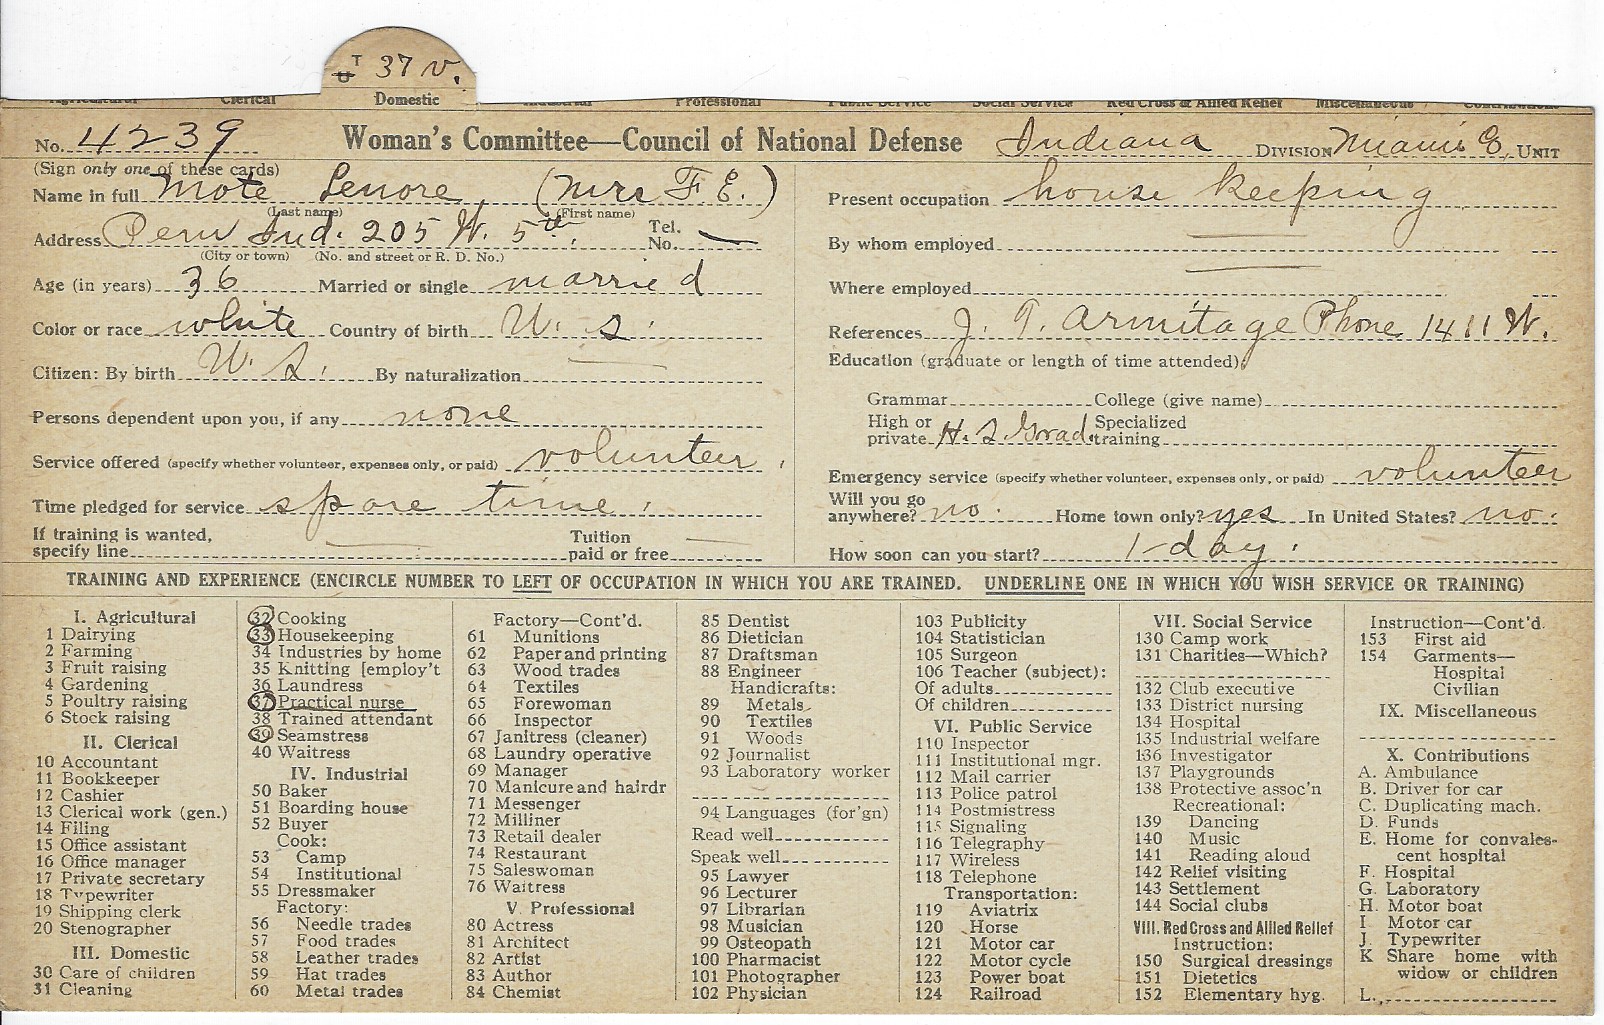 T
U 37 v.
Agricultural Clerical Domestic Industrial Professional Public Service Social Service Red Cross & Allied Relief Miscellaneous Contributions
No. 4239 Woman's Committee—Council of National Defense Indiana DIVISION Miami Co. UNIT
(Sign only one of these cards)
Name in full Mote Lenore (Mrs F E.)
(Last name) (First name)
Address Peru Ind. 205 W. 5th. Tel. No. —
(City or town) (No. and street or R. D. No.)
Age (in years) 36 Married or single married
Color or race white Country of birth U. S.
Citizen: By birth U. S. By naturalization —
Persons dependent upon you, if any none
Service offered (specify whether volunteer, expenses only, or paid) volunteer.
Time pledged for service spare time.
If training is wanted, specify line — Tuition paid or free —
Present occupation house keeping
By whom employed —
Where employed —
References J. T. Armitage Phone 1411 W.
Education (graduate or length of time attended):
Grammar College (give name)
High or private H. S Grad. Specialized training
Emergency service (specify whether volunteer, expenses only, or paid) volunteer
Will you go anywhere? no. Home town only? yes In United States? no.
How soon can you start? 1-day.
TRAINING AND EXPERIENCE (ENCIRCLE NUMBER TO LEFT OF OCCUPATION IN WHICH YOU ARE TRAINED. UNDERLINE ONE IN WHICH YOU WISH SERVICE OR TRAINING)
I. Agricultural
1 Dairying
2 Farming
3 Fruit raising
4 Gardening
5 Poultry raising
6 Stock raising
II. Clerical
10 Accountant
11 Bookkeeper
12 Cashier
13 Clerical work (gen.)
14 Filing
15 Office assistant
16 Office manager
17 Private secretary
18 Typewriter
19 Shipping clerk
20 Stenographer
III. Domestic
30 Care of children
31 Cleaning
32 Cooking
33 Housekeeping
34 Industries by home
35 Knitting [employ't
36 Laundress
37 Practical nurse
38 Trained attendant
39 Seamstress
40 Waitress
IV. Industrial
50 Baker
51 Boarding house
52 Buyer
Cook:
53 Camp
54 Institutional
55 Dressmaker
Factory:
56 Needle trades
57 Food trades
58 Leather trades
59 Hat trades
60 Metal trades
Factory—Cont'd.
61 Munitions
62 Paper and printing
63 Wood trades
64 Textiles
65 Forewoman
66 Inspector
67 Janitress (cleaner)
68 Laundry operative
69 Manager
70 Manicure and hairdr
71 Messenger
72 Milliner
73 Retail dealer
74 Restaurant
75 Saleswoman
76 Waitress
V. Professional
80 Actress
81 Architect
82 Artist
83 Author
84 Chemist
85 Dentist
86 Dietician
87 Draftsman
88 Engineer
Handicrafts:
89 Metals
90 Textiles
91 Woods
92 Journalist
93 Laboratory worker
94 Languages (for'gn)
Read well
Speak well
95 Lawyer
96 Lecturer
97 Librarian
98 Musician
99 Osteopath
100 Pharmacist
101 Photographer
102 Physician
103 Publicity
104 Statistician
105 Surgeon
106 Teacher (subject):
Of adults
Of children
VI. Public Service
110 Inspector
111 Institutional mgr.
112 Mail carrier
113 Police patrol
114 Postmistress
115 Signaling
116 Telegraphy
117 Wireless
118 Telephone
Transportation:
119 Aviatrix
120 Horse
121 Motor car
122 Motor cycle
123 Power boat
124 Railroad
VII. Social Service
130 Camp work
131 Charities—Which?
132 Club executive
133 District nursing
134 Hospital
135 Industrial welfare
136 Investigator
137 Playgrounds
138 Protective assoc'n
Recreational:
139 Dancing
140 Music
141 Reading aloud
142 Relief visiting
143 Settlement
144 Social clubs
VIII. Red Cross and Allied Relief
Instruction:
150 Surgical dressings
151 Dietetics
152 Elementary hyg.
Instruction—Cont'd.
153 First aid
154 Garments—
Hospital
Civilian
IX. Miscellaneous
X. Contributions
A. Ambulance
B. Driver for car
C. Duplicating mach.
D. Funds
E. Home for convales-
cent hospital
F. Hospital
G. Laboratory
H. Motor boat
I. Motor car
J. Typewriter
K Share home with
widow or children
L.